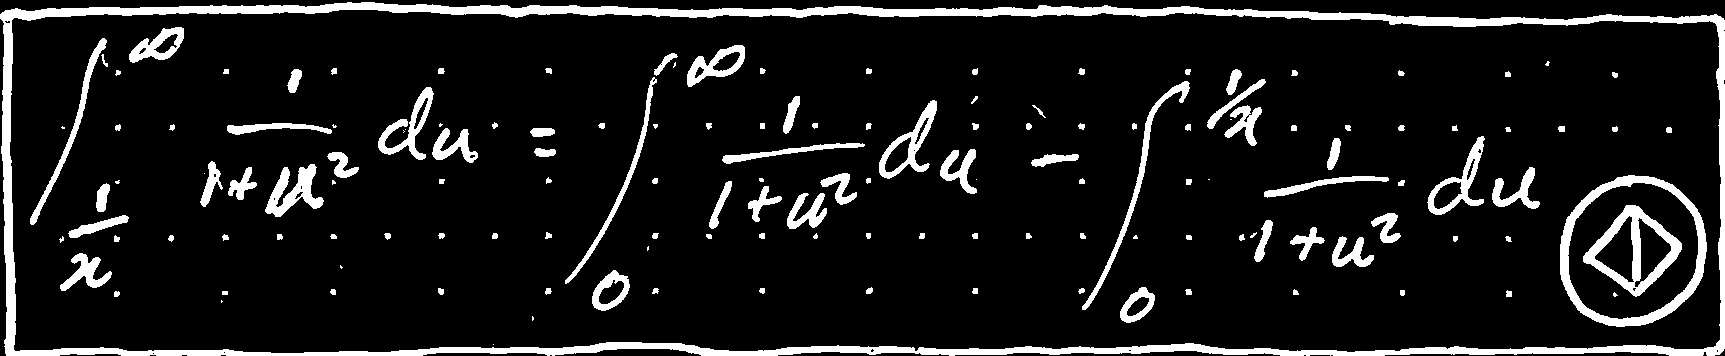 ∫_{1/x}^{∞} 1/(1+u²) du = ∫_0^{∞} 1/(1+u²) du − ∫_0^{1/x} 1/(1+u²) du